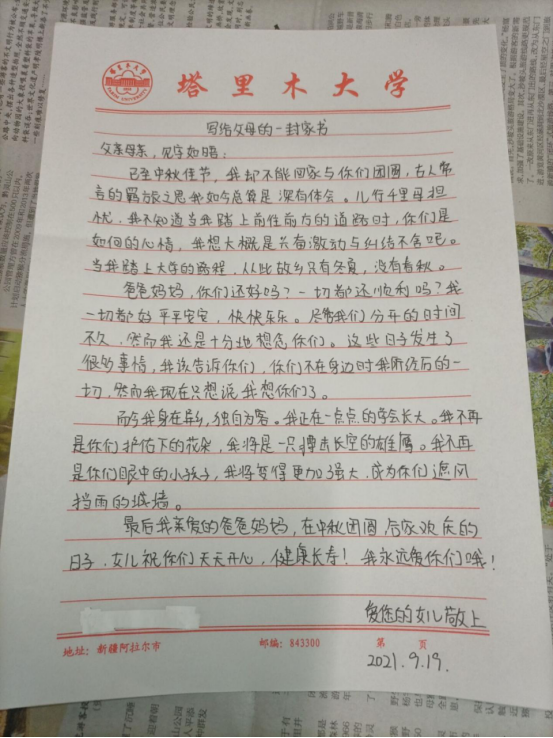 塔里木大学
TARIM UNIVERSITY
塔里木大学
写给父母的一封家书
父亲母亲,见字如晤:
已至中秋佳节,我却不能回家与你们团圆,古人常
言的羁旅之思我如今总算是深有体会。儿行千里母担
忧,我不知道当我踏上前往前方的道路时,你们是
如何的心情,我想大概是共有激动与纠结不舍吧。
当我踏上大学的路程,从此故乡只有冬夏,没有春秋。
爸爸妈妈,你们还好吗?一切都还顺利吗?我
一切都好,平平安安,快快乐乐。尽管我们分开的时间
不久,然而我还是十分地想念你们。这些日子发生了
很多事情,我该告诉你们,你们不在身边时我所经历的一
切,然而我现在只想说我想你们了。
而今我身在异乡,独自为客。我正在一点点的学会长大。我不再
是你们护佑下的花朵,我将是一只搏击长空的雄鹰。我不再
是你们眼中的小孩子,我将变得更加强大,成为你们遮风
挡雨的城墙。
最后我亲爱的爸爸妈妈,在中秋团圆,合家欢庆的
日子,女儿祝你们天天开心,健康长寿!我永远爱你们哦!
爱您的女儿敬上
地址:新疆阿拉尔市 邮编:843300 第 页
2021.9.19.